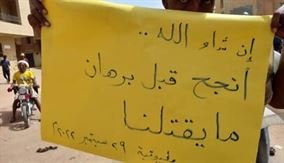 إن شاء الله ..
أنجح قبل برهان
ما يقتلنا
مليونية ٢٩ سبتمبر ٢٠٢٢م